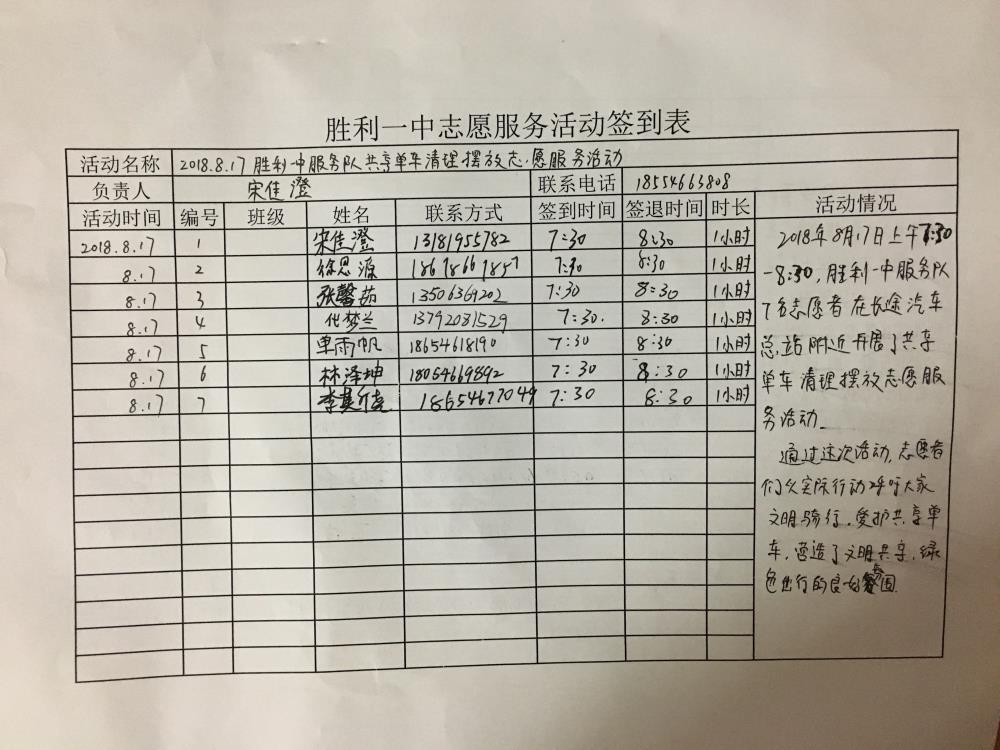 胜利一中志愿服务活动签到表
活动名称 2018.8.17 胜利一中服务队共享单车清理摆放志愿服务活动
负责人 宋佳澄 联系电话 18554663808
活动时间 编号 班级 姓名 联系方式 签到时间 签退时间 时长 活动情况
2018.8.17 1 宋佳澄 13181955782 7:30 8:30 1小时
8.17 2 徐思源 18678661857 7:30 8:30 1小时
8.17 3 张馨茹 13506369202 7:30 8:30 1小时
8.17 4 代梦兰 13792081529 7:30. 8:30 1小时
8.17 5 单雨帆 18654618190 7:30 8:30 1小时
8.17 6 林泽坤 18054669892 7:30 8:30 1小时
8.17 7 18654677049 7:30 8:30 1小时
2018年8月17日上午7:30
-8:30,胜利一中服务队
7名志愿者在长途汽车
总站附近开展了共享
单车清理摆放志愿服
务活动.
通过这次活动,志愿者
们以实际行动呼吁大家
文明骑行,爱护共享单
车,营造了文明共享,绿
色出行的良好氛围.